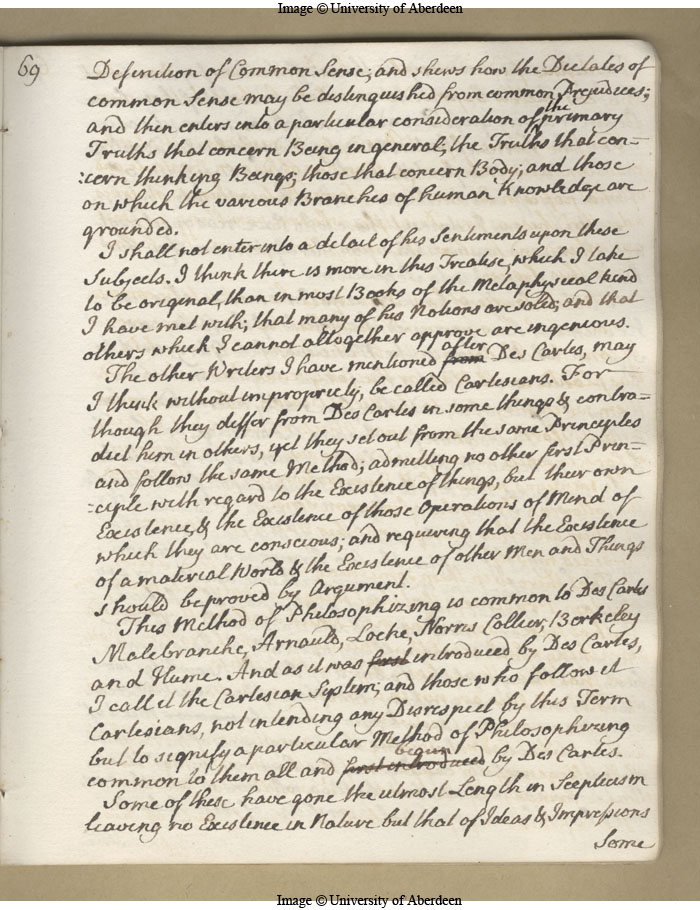 Image © University of Aberdeen
69
Definition of Common Sense; and shews how the Dictates of
common Sense may be distinguished from common Prejudices;
and then enters into a particular consideration of the primary
Truths that concern Being in general; the Truths that con=
:cern thinking Beings; those that concern Body; and those
on which the various Branches of human Knowledge are
grounded.
I shall not enter into a detail of his Sentiments upon these
Subjects. I think there is more in this Treatise, which I take
to be original, than in most Books of the Metaphysical kind
I have met with; that many of his Notions are solid; and that
others which I cannot altogether approve are ingenious.
The other Writers I have mentioned from after Des Cartes, may
I think without impropriety, be called Cartesians. For
though they differ from Des Cartes in some things & contra=
dict him in others, yet they set out from the same Principles
and follow the same Method; admitting no other first Prin=
:ciple with regard to the Existence of things, but their own
Existence, & the Existence of those Operations of Mind of
which they are conscious; and requiring that the Existence
of a material World & the Existence of other Men and Things
should be proved by Argument.
This Method of Philosophizing is common to Des Cartes
Malebranche, Arnauld, Locke, Norris Collier, Berkeley
and Hume. And as it was first introduced by Des Cartes,
I call it the Cartesian System; and those who follow it
Cartesians, not intending any Disrespect by this Term
but to signify a particular Method of Philosophizing
common to them all and first introduced begun by Des Cartes.
Some of these have gone the utmost Length in Scepticism
leaving no Existence in Nature but that of Ideas & Impressions
Some
Image © University of Aberdeen